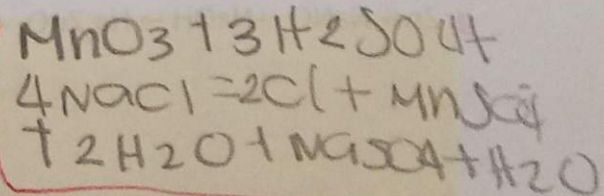 MnO3 + 3H2SO4 +
4NaCl = 2Cl + MnSO4
+ 2H2O + NaSO4 + H2O